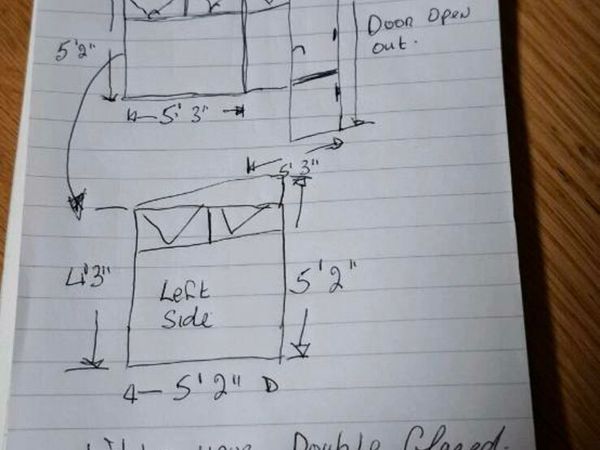 Door Open
out.
5'2"
5'3"
5'3"
4'3"
Left
Side
5'2"
5'2"
Double Glazed.